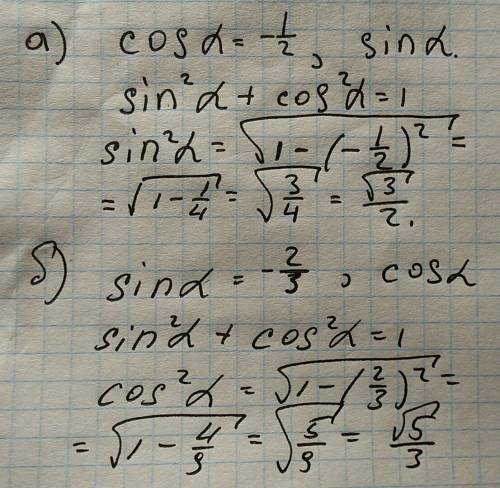 а) cos α = -1/2, sin α.
sin²α + cos²α = 1
sin²α = √(1 - (-1/2)²) =
= √(1 - 1/4) = √(3/4) = √3/2.
б) sin α = -2/3, cos α
sin²α + cos²α = 1
cos²α = √(1 - (2/3)²) =
= √(1 - 4/9) = √(5/9) = √5/3